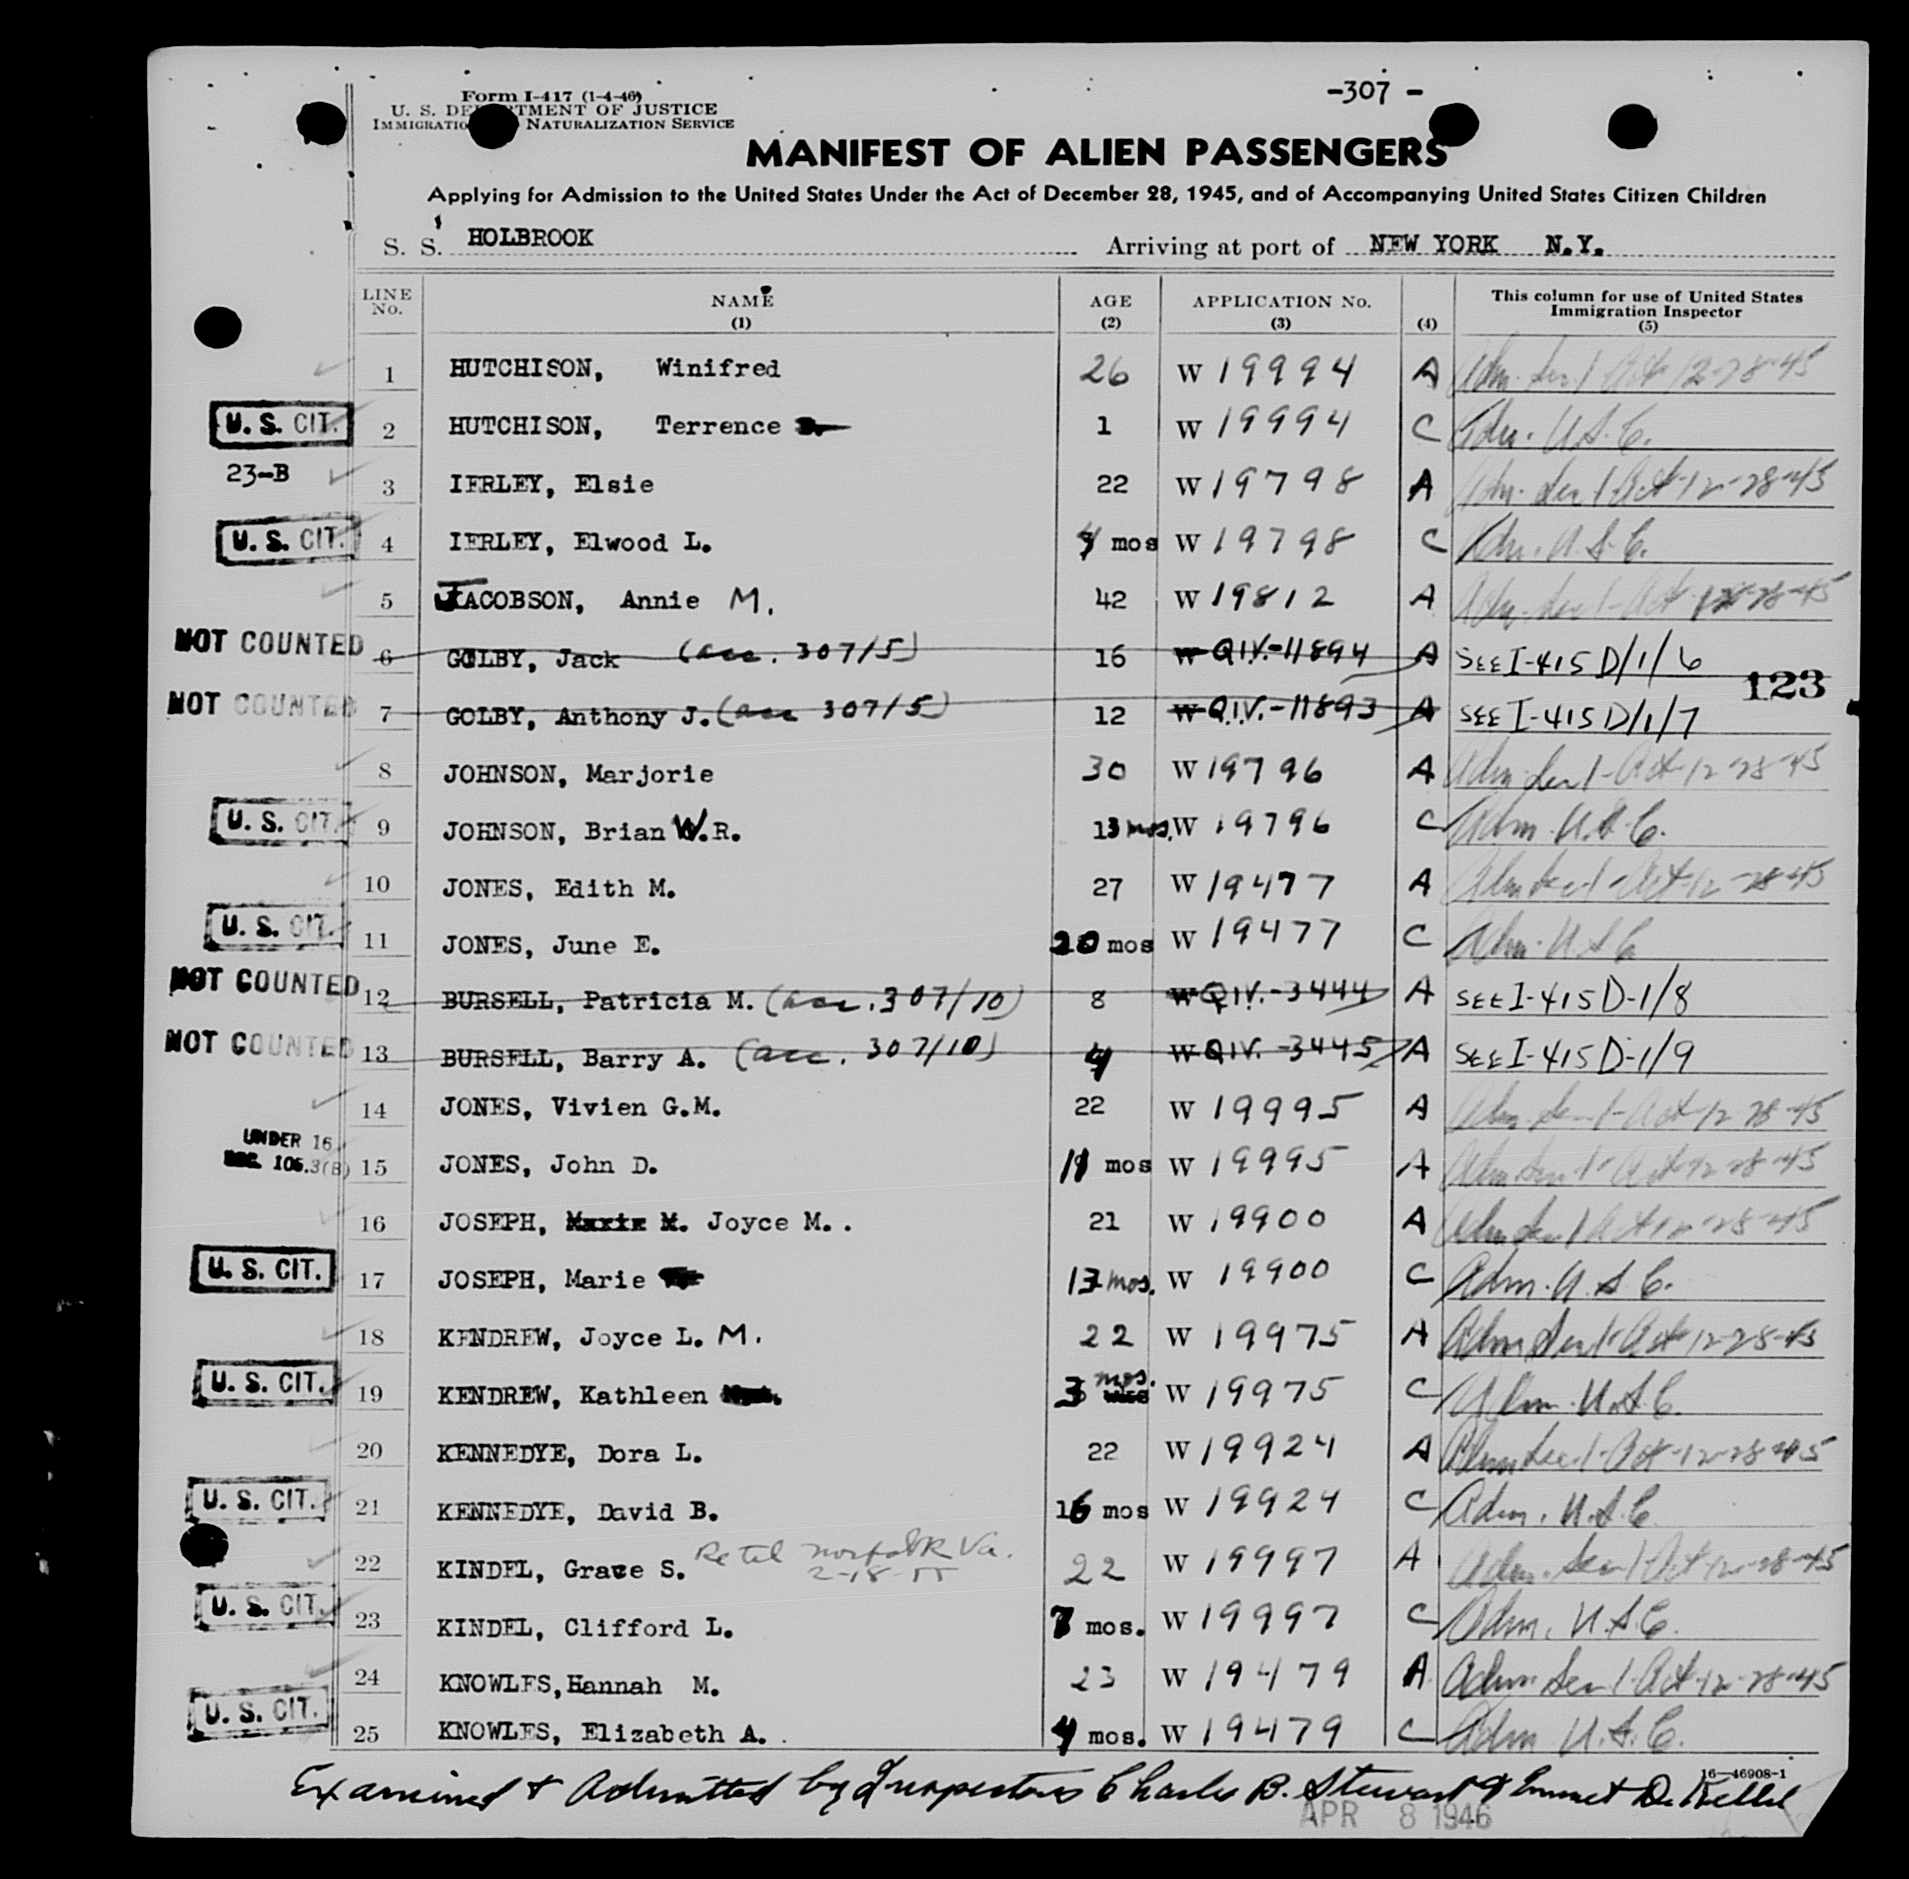 -307 -
Form I-417 (1-4-46)
U. S. DEPARTMENT OF JUSTICE
IMMIGRATION NATURALIZATION SERVICE
MANIFEST OF ALIEN PASSENGERS
Applying for Admission to the United States Under the Act of December 28, 1945, and of Accompanying United States Citizen Children
S. S. HOLBROOK Arriving at port of NEW YORK N.Y.
LINE No. NAME (1) AGE (2) APPLICATION No. (3) (4) This column for use of United States Immigration Inspector (5)
1 HUTCHISON, Winifred 26 W 19994 A Adm. Sec 1 Act 12-28-45
U. S. CIT. 2 HUTCHISON, Terrence 1 W 19994 C Adm. U.S.C.
23-B 3 IERLEY, Elsie 22 W 19798 A Adm. Sec 1 Act 12-28-45
U. S. CIT. 4 IERLEY, Elwood L. mos W 19798 C Adm. U.S.C.
5 JACOBSON, Annie M. 42 W 19812 A Adm. Sec 1-Act 12-28-45
NOT COUNTED 6 GOLBY, Jack (acc. 307/5) 16 W Q.I.V.-11894 A SEE I-415 D/1/6
123
NOT COUNTED 7 GOLBY, Anthony J. (acc 307/5) 12 W Q.I.V.-11893 A SEE I-415 D/1/7
8 JOHNSON, Marjorie 30 W 19796 A Adm Sec 1-Act 12-28-45
U. S. CIT. 9 JOHNSON, Brian W.R. 13 mos. W 19796 C Adm. U.S.C.
10 JONES, Edith M. 27 W 19477 A Adm Sec 1-Act 12-28-45
U. S. CIT. 11 JONES, June E. 20 mos W 19477 C Adm. U S C
NOT COUNTED 12 BURSELL, Patricia M. (acc. 307/10) 8 W Q.I.V.-3444 A SEE I-415 D-1/8
NOT COUNTED 13 BURSELL, Barry A. (acc. 307/10) 4 W Q.I.V.-3445 A SEE I-415 D-1/9
14 JONES, Vivien G.M. 22 W 19995 A Adm. Sec 1-Act 12-28-45
UNDER 16
SEC. 105.3(B) 15 JONES, John D. 11 mos W 19995 A Adm Sec 1-Act 12-28-45
16 JOSEPH, Joyce M.. 21 W 19900 A Adm Sec 1 Act 12-28-45
U. S. CIT. 17 JOSEPH, Marie 13 mos. W 19900 C Adm. U.S.C.
18 KENDREW, Joyce L. M. 22 W 19975 A Adm Sec 1-Act 12-28-45
U. S. CIT. 19 KENDREW, Kathleen 3 mos. W 19975 C Adm. U.S.C.
20 KENNEDYE, Dora L. 22 W 19924 A Adm Sec 1-Act-12-28-45
U. S. CIT. 21 KENNEDYE, David B. 16 mos W 19924 C Adm. U.S.C
22 KINDEL, Grace S. Norfolk Va. 22 W 19997 A Adm. Sec 1 Act 12-28-45
2-18-55
U. S. CIT. 23 KINDEL, Clifford L. 7 mos. W 19997 C Adm. U.S.C.
24 KNOWLES, Hannah M. 23 W 19479 A Adm. Sec 1-Act-12-28-45
U. S. CIT. 25 KNOWLES, Elizabeth A. 4 mos. W 19479 C Adm U.S.C.
16—46908-1
Examined & Admitted by Inspectors Charles B. Stewart & Emmet D.
APR 8 1946